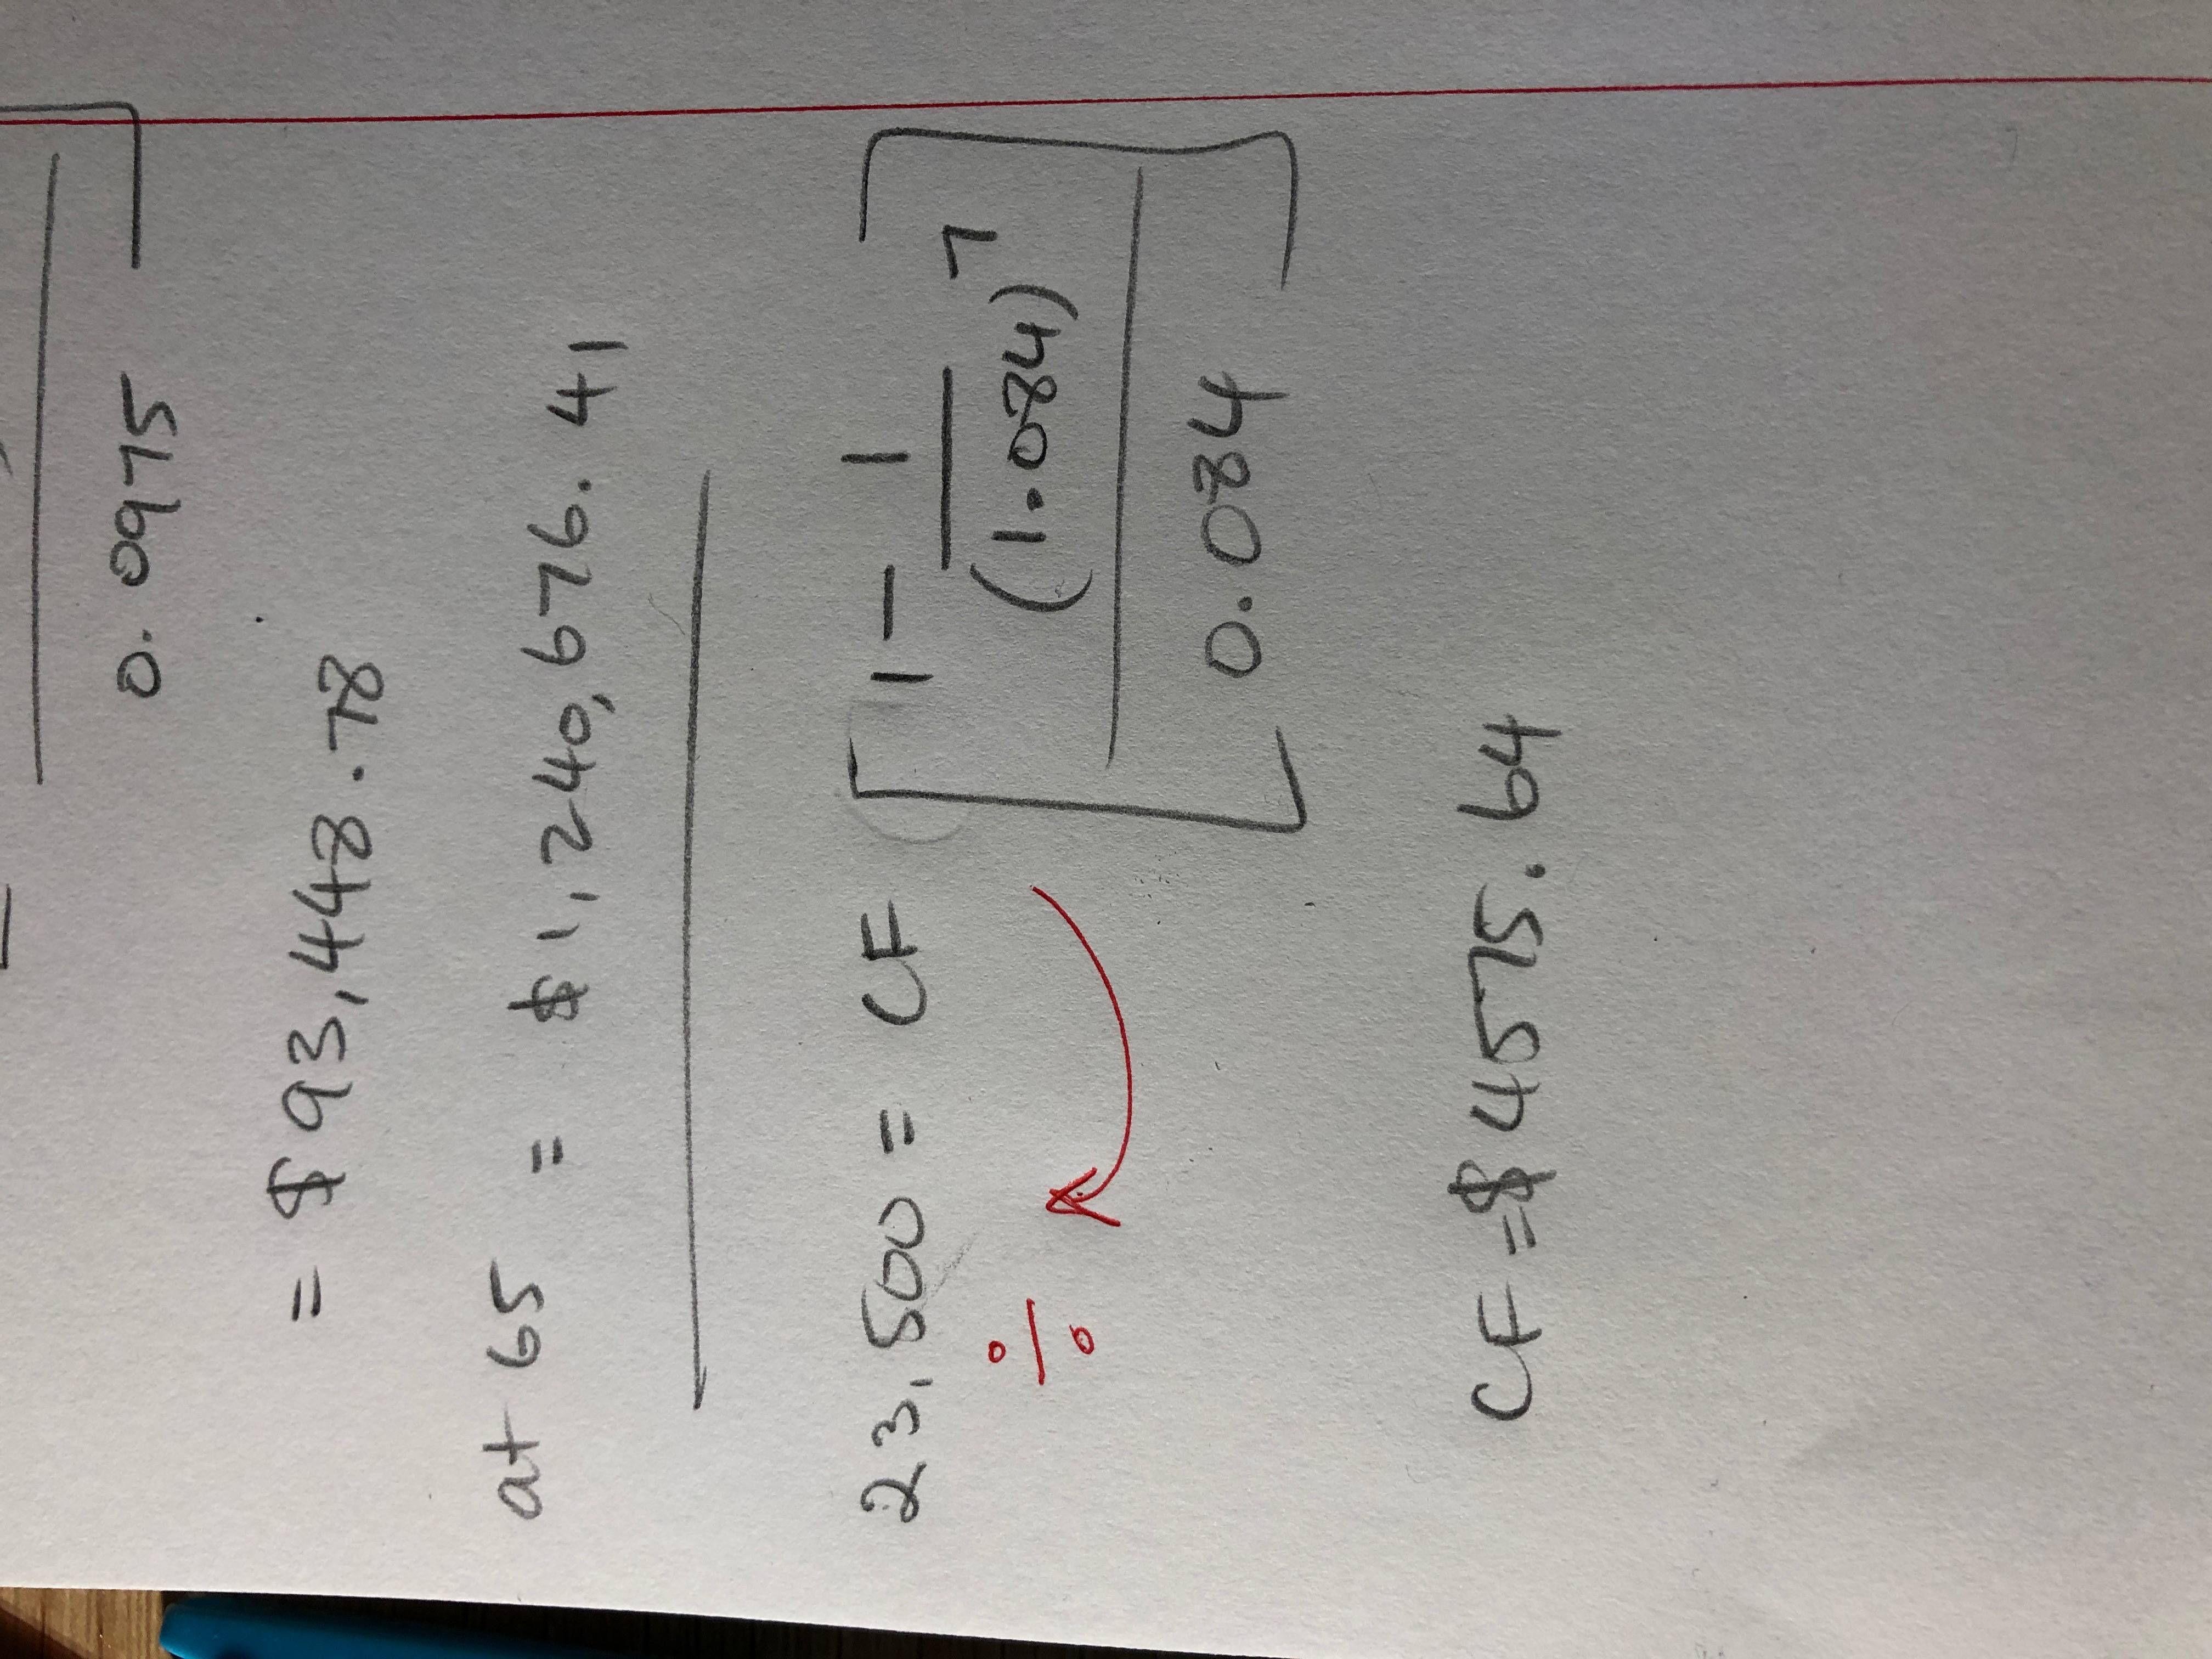 0.0975
= $93,448.78
at 65 = $1,240,676.41
1 - 1
23,500 = CF
(1.084)^7
÷
0.084
CF = $4575.64